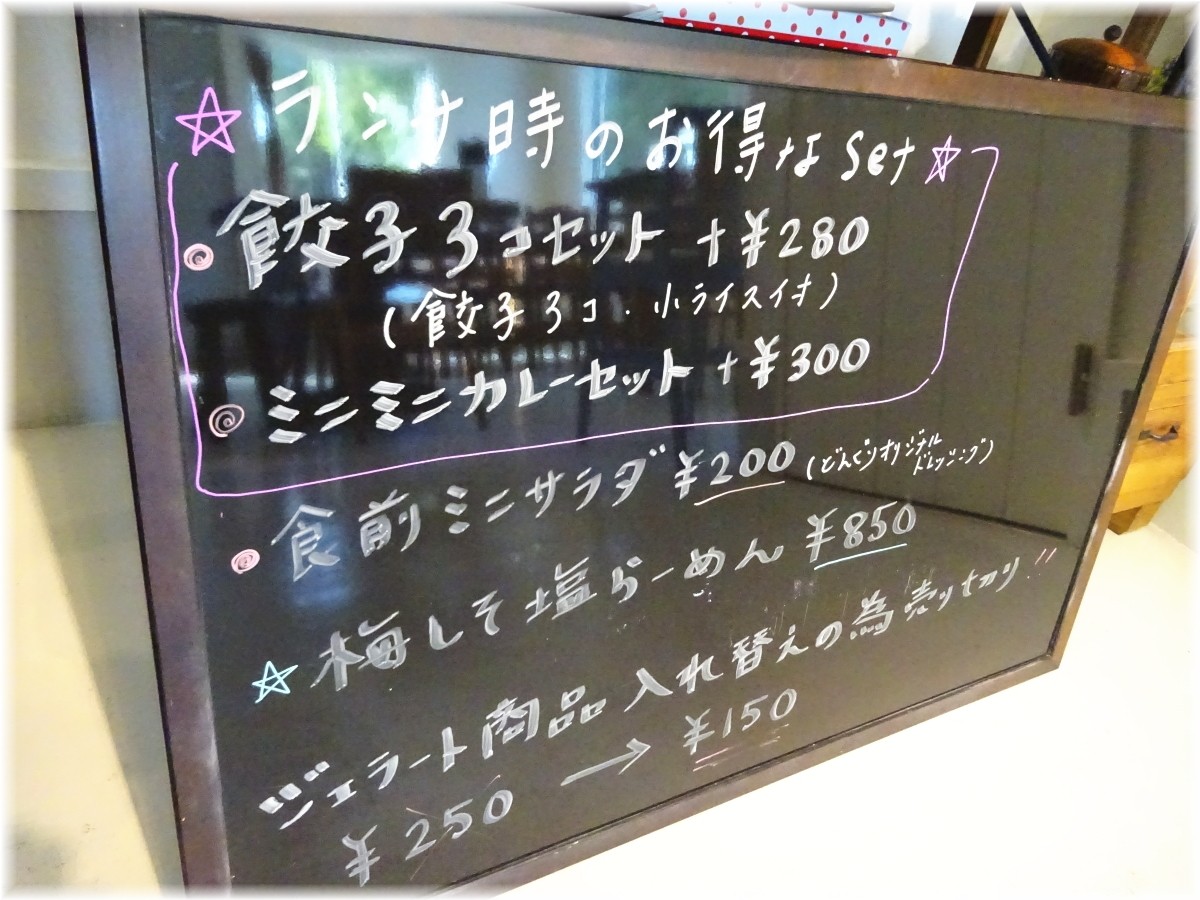 ☆ランチ時のお得なSet☆
餃子3コセット +¥280
(餃子3コ・小ライス付)
ミニミニカレーセット +¥300
食前ミニサラダ ¥200 (どんぐりオリジナル
ドレッシング)
☆梅しそ塩らーめん ¥850
ジェラート商品入れ替えの為売り切り!!
¥250 → ¥150